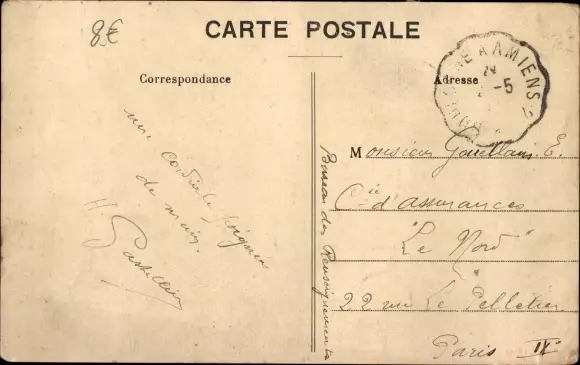 8€
CARTE POSTALE
Correspondance
Adresse
A AMIENS 2
-5
une cordiale poignée
de main.
H
Bureau des Renseignements
Monsieur E.
Cie d'assurances
"Le Nord"
22 rue Le Pelletier
Paris IX